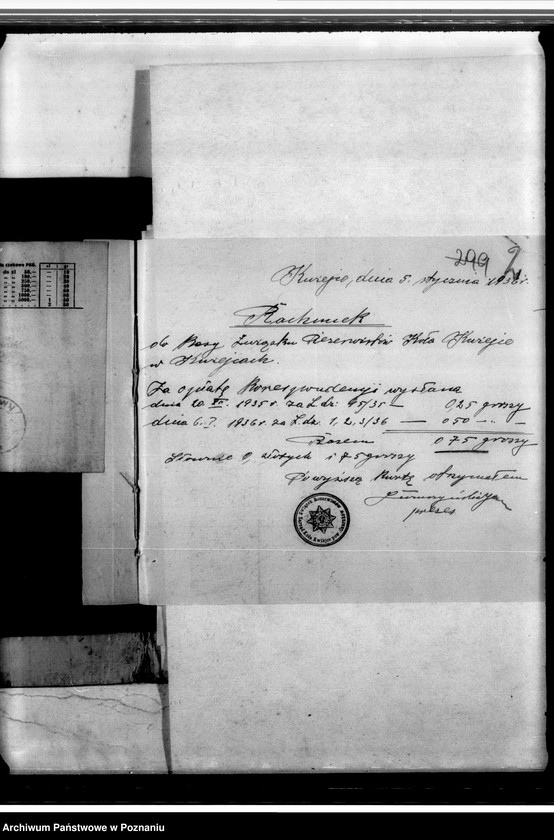 299 2
Kwiejce, dnia 5. stycznia 1936 r.
Rachunek
do Kasy Związku Rezerwistów Koła Kwiejce
w Kwiejcach.
Za opłatę korespondencji wysłaną
dnia 20 XII. 1935 r. za L.dz. 45/35 — 0,25 groszy
dnia 6. I. 1936 r. za L.dz. 1, 2, 3/36 — 0 50 — " —
Razem 0 75 groszy
Słownie 0, złotych i 75 groszy
Powyższą kwotę otrzymałem
prezes
Archiwum Państwowe w Poznaniu